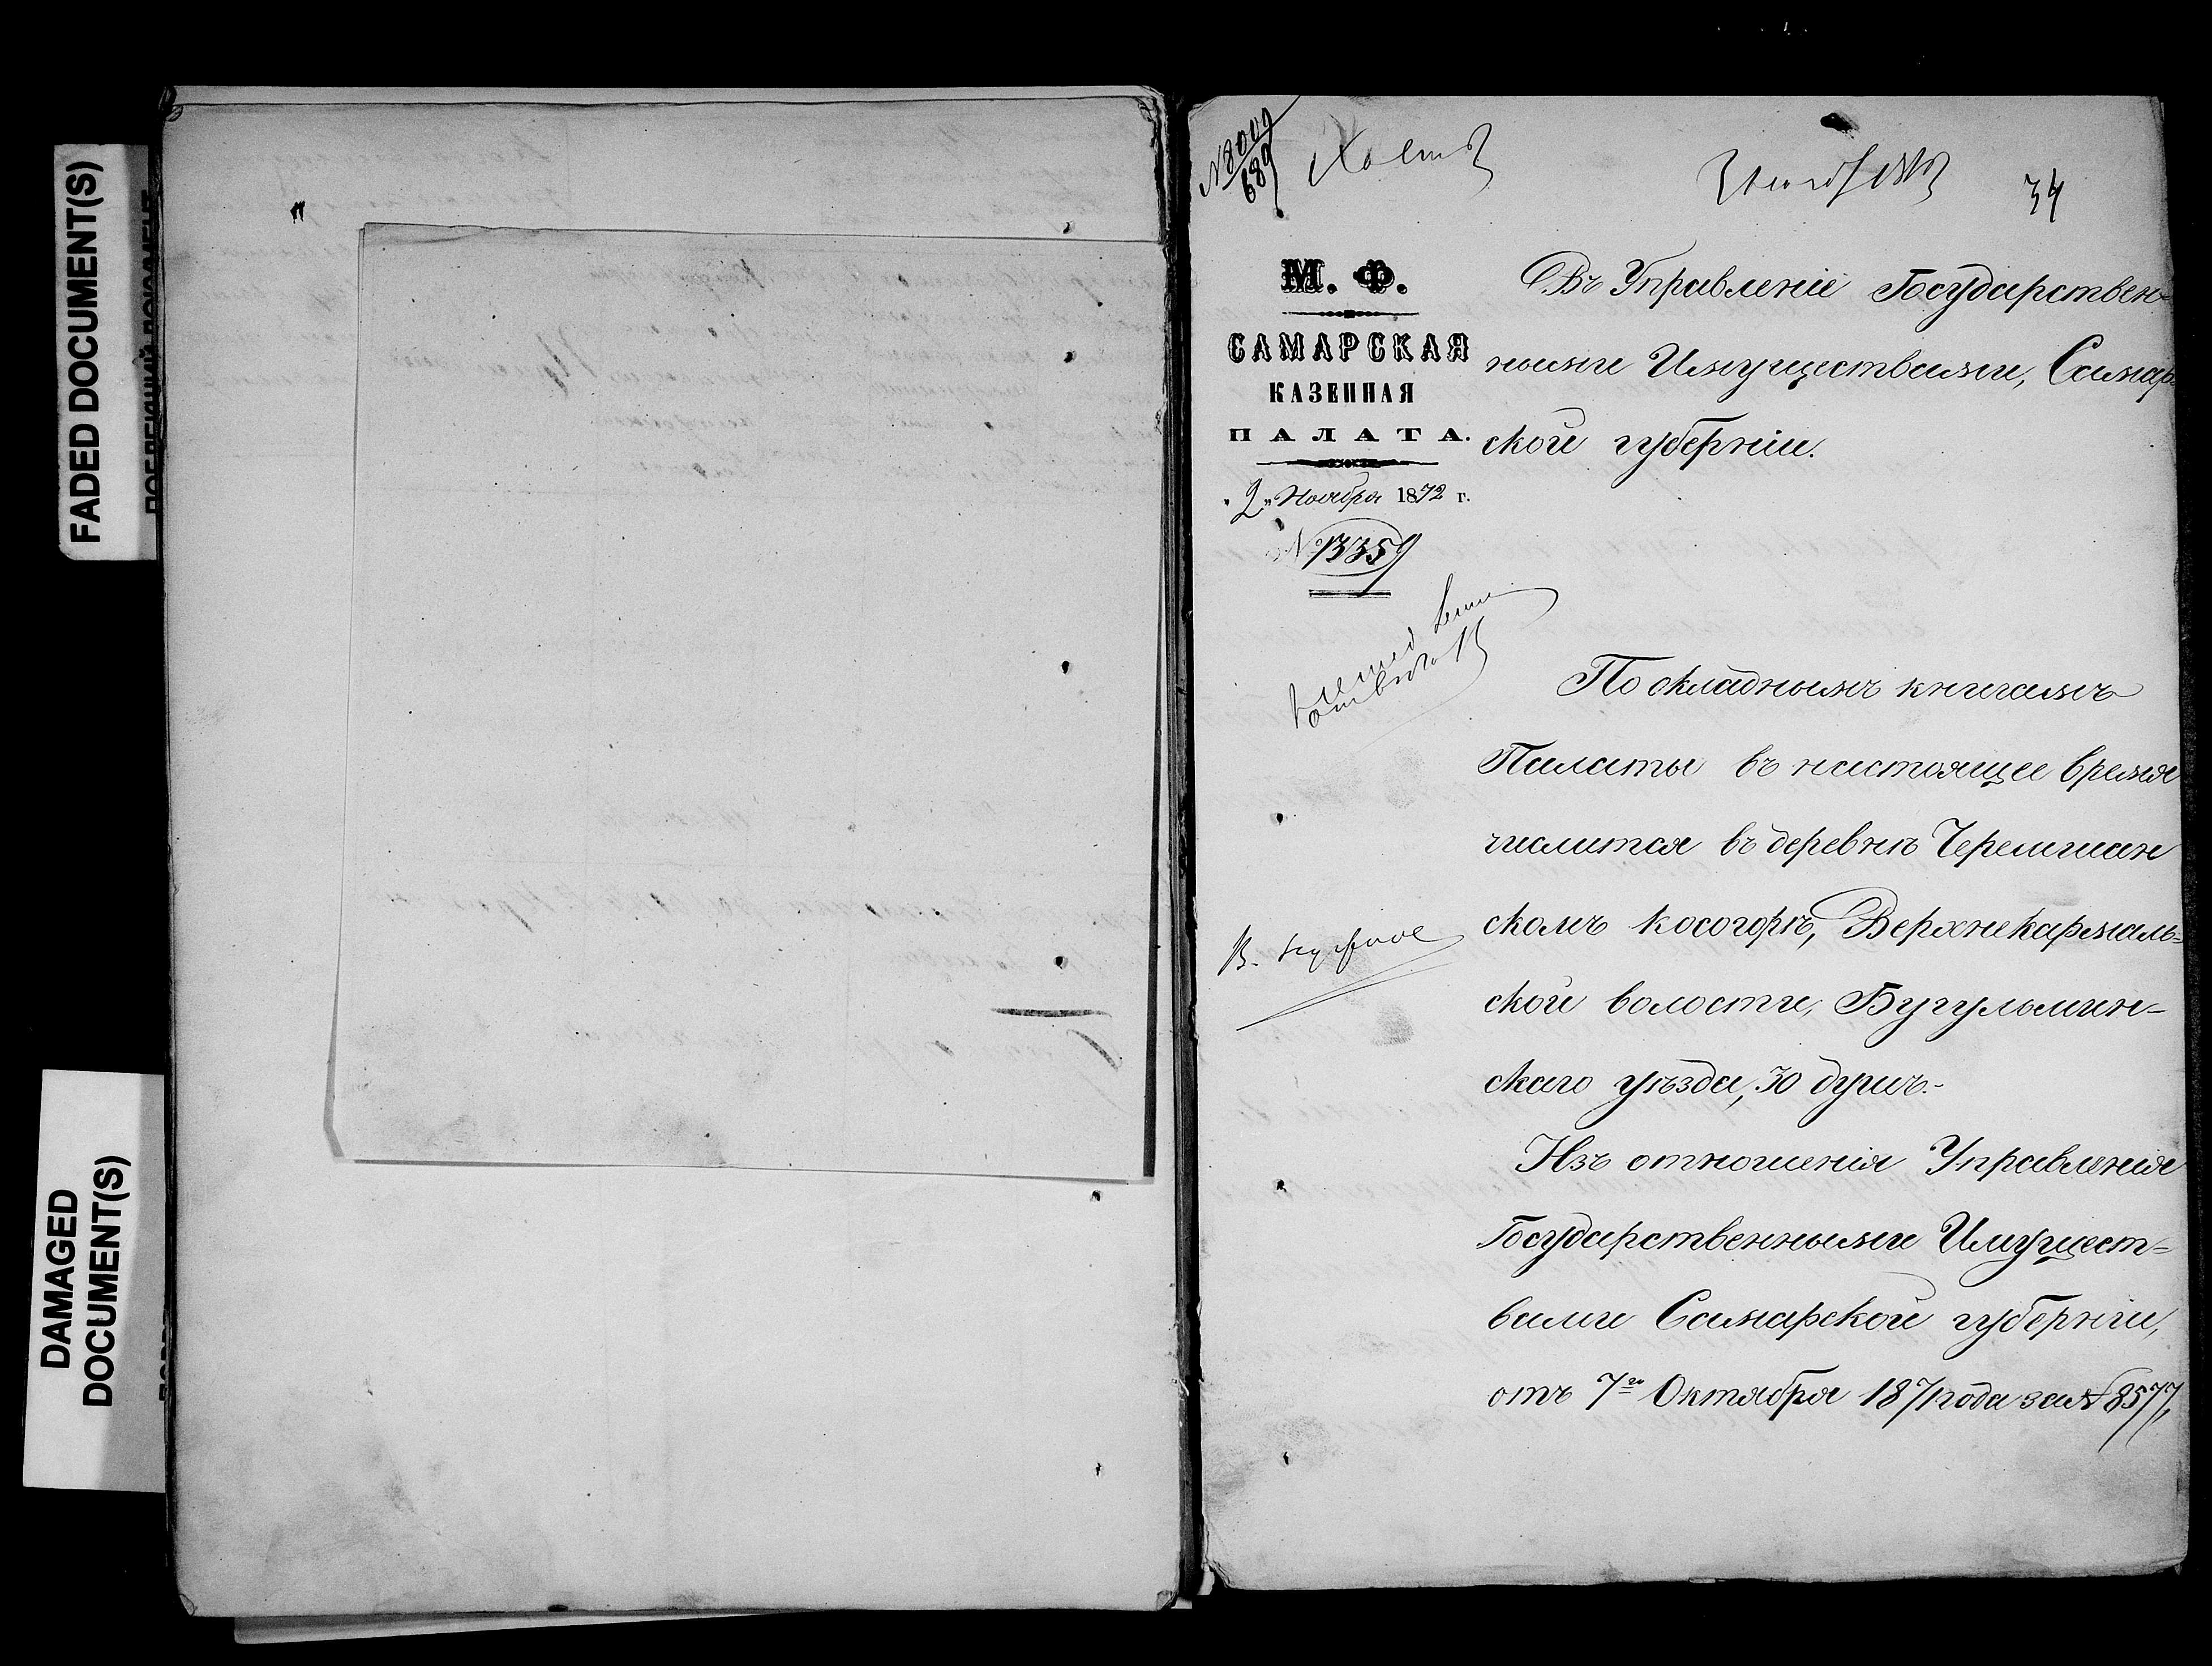 FADED DOCUMENT(S)
DAMAGED
DOCUMENT(S)
№ 8009
689
34
М. Ф.
САМАРСКАЯ
КАЗЕННАЯ
ПАЛАТА.
"2" Ноября 1872 г.
№ 13359
Въ Управленіе Государствен-
ными Имуществами, Самар-
ской губерніи.
По окладнымъ книгамъ
Палаты въ настоящее время
числится въ деревнѣ Черемшан
скомъ косогорѣ, Верхнекармаль-
ской волости, Бугульмин-
скаго уѣзда, 30 душъ.-
Изъ отношенія Управленія
Государственными Имущест-
вами Самарской губерніи,
отъ 7го Октября 1871 года за № 8577,